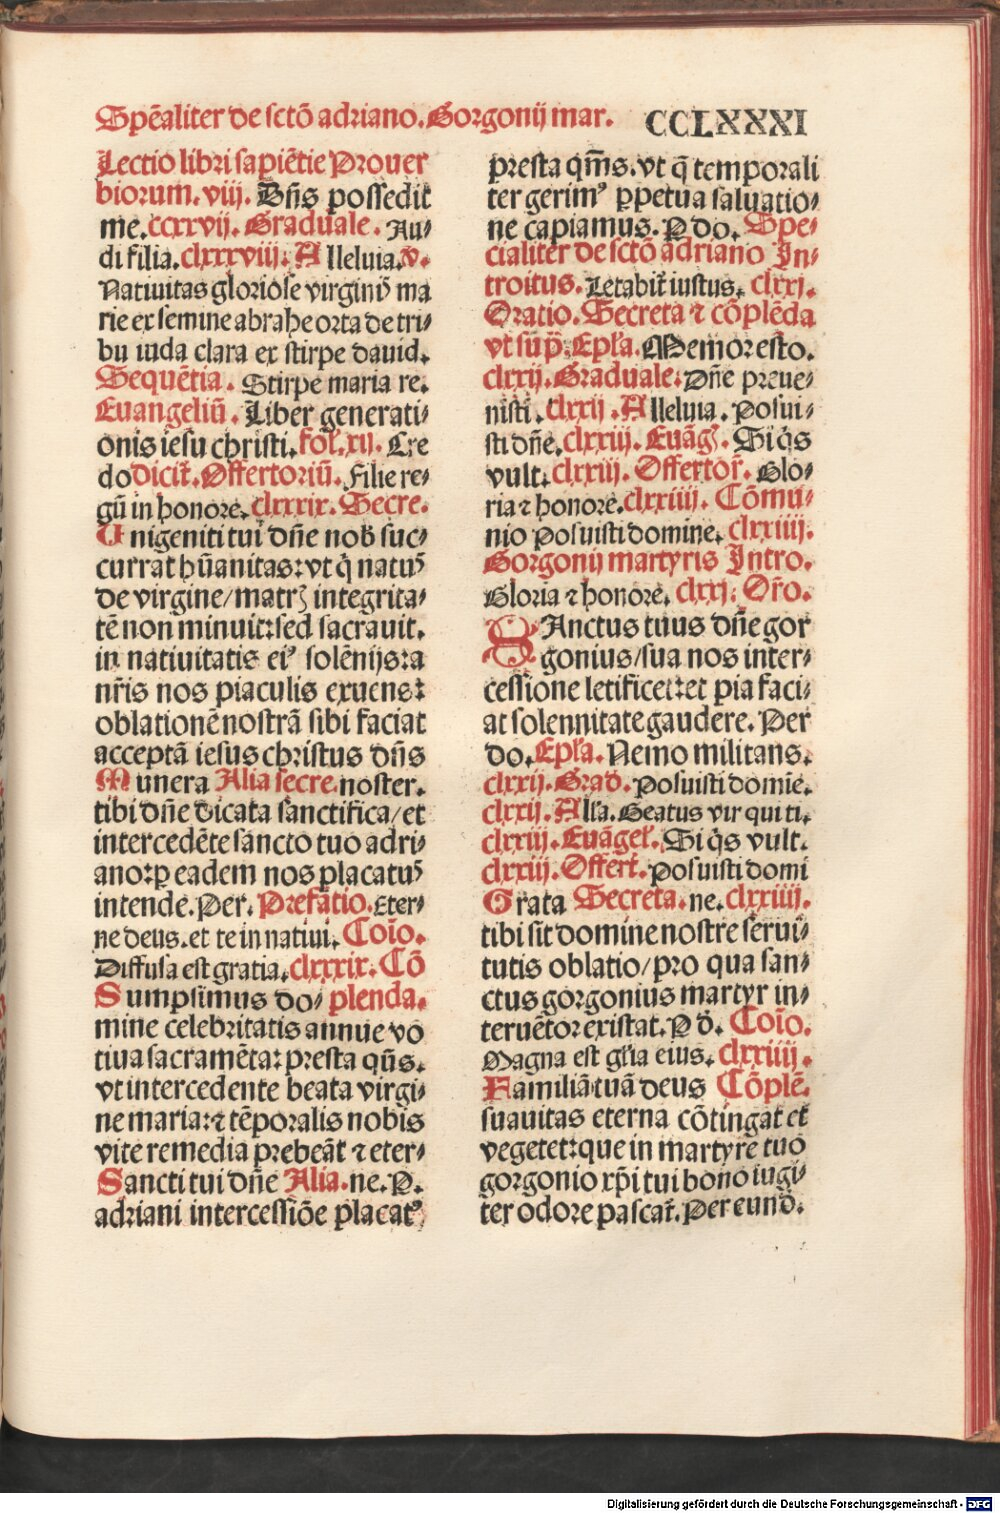 Spēaliter de sctō adriano. Gorgonij mar. CCLXXXI
Lectio libri sapiētie Prouer
biorum. viij. Dn̄s possedit
me. ccxxvij. Graduale. Au⸗
di filia. clxxxviij. Alleluia. v.
Natiuitas gloriose virginꝰ ma
rie ex semine abrahe orta de tri⸗
bu iuda clara ex stirpe dauid.
Sequētia. Stirpe maria re.
Euangeliū. Liber generati⸗
onis iesu christi. fol. xij. Cre
do dicit̄. Offertoriū. Filie re⸗
gū in honore. clxxxix. Secre.
Unigeniti tui dn̄e nob̄ suc⸗
currat hūanitas: vt q̄ natꝰ
de virgine/matrꝫ integrita⸗
tē non minuit: sed sacrauit.
in natiuitatis eiꝰ solēnijs: a
nr̄is nos piaculis exuens:
oblationē nostrā sibi faciat
acceptā iesus christus dn̄s
Munera Alia secre. noster.
tibi dn̄e dicata sanctifica/et
intercedēte sancto tuo adri⸗
ano: ꝑ eadem nos placatꝰ
intende. Per. Prefatio. Eter⸗
ne deus. et te in natiui. Coīo.
Diffusa est gratia. clxxxix. Cō
Sumpsimus do⸗ plenda.
mine celebritatis annue vo
tiua sacramēta: presta qūs.
vt intercedente beata virgi⸗
ne maria: ⁊ tēporalis nobis
vite remedia prebeāt ⁊ eter⸗
Sancti tui dn̄e Alia. ne. P.
adriani intercessiōe placatꝰ
presta qm̄s. vt q̄ temporali
ter gerimꝰ ꝑpetua saluatio⸗
ne capiamus. P do. Spe⸗
cialiter de sctō adriano In⸗
troitus. Letabit̄ iustus. clxxj.
Oratio. Secreta ⁊ cōplēda
vt sup̄. Ep̄la. Memor esto.
clxxij. Graduale. Dn̄e preue⸗
nisti. clxxij. Alleluia. Posui⸗
sti dn̄e. clxxiij. Euāḡ. Si q̄s
vult. clxxiij. Offertor̄. Glo⸗
ria ⁊ honore. clxxiiij. Cōmu⸗
nio Posuisti domine. clxxiiij.
Gorgonij martyris Intro.
Gloria ⁊ honore. clxxj. Or̄o.
SAnctus tuus dn̄e gor
gonius/sua nos inter⸗
cessione letificet: et pia faci⸗
at solennitate gaudere. Per
do. Ep̄la. Nemo militans.
clxxij. Grad. Posuisti domīe.
clxxij. All̄a. Beatus vir qui ti.
clxxiij. Euāgel̄. Si q̄s vult.
clxxiij. Offert̄. Posuisti domi
Grata Secreta. ne. clxxiiij.
tibi sit domine nostre serui⸗
tutis oblatio/pro qua san⸗
ctus gorgonius martyr in⸗
teruētor existat. P d̄. Coīo.
Magna est gl̄ia eius. clxxiiij.
Familiā tuā deus Cōplē.
suauitas eterna cōtingat et
vegetet: que in martyre tuo
gorgonio xp̄i tui bono iugi⸗
ter odore pascat̄. Per eund̄.
Digitalisierung gefördert durch die Deutsche Forschungsgemeinschaft - DFG